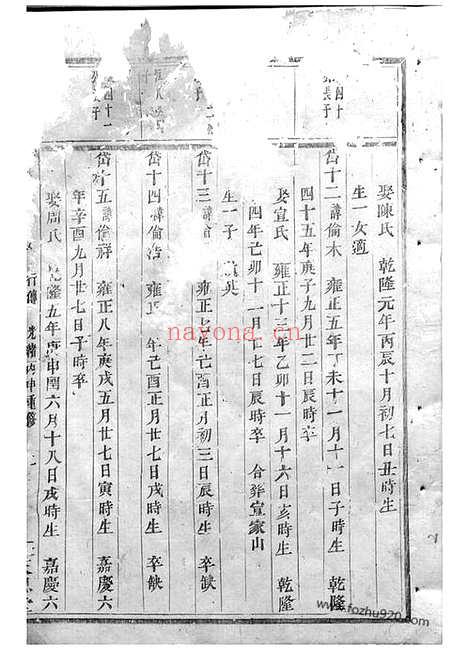 四十
長子
娶陳氏 乾隆元年丙辰十月初七日丑時生
生一女適
岱十二諱倫木 雍正五年丁未十一月十一日子時生 乾隆
四十五年庚子九月廿二日辰時卒
娶宣氏 雍正十三年乙卯十一月十六日亥時生 乾隆
四年己卯十一月十七日辰時卒 合葬宣家山
生一子
岱十三諱 雍正七年己酉正月初三日辰時生 卒缺
岱十四諱倫浩 雍正 年己酉正月廿七日戌時生 卒缺
四十一
長子
岱十五諱倫祥 雍正八年庚戌五月廿七日寅時生 嘉慶六
年辛酉九月廿七日子時卒
娶周氏 乾隆五年庚申閏六月十八日戌時生 嘉慶六
行傳 光緒丙申重修
nayona.cn
www.fozhu920.com